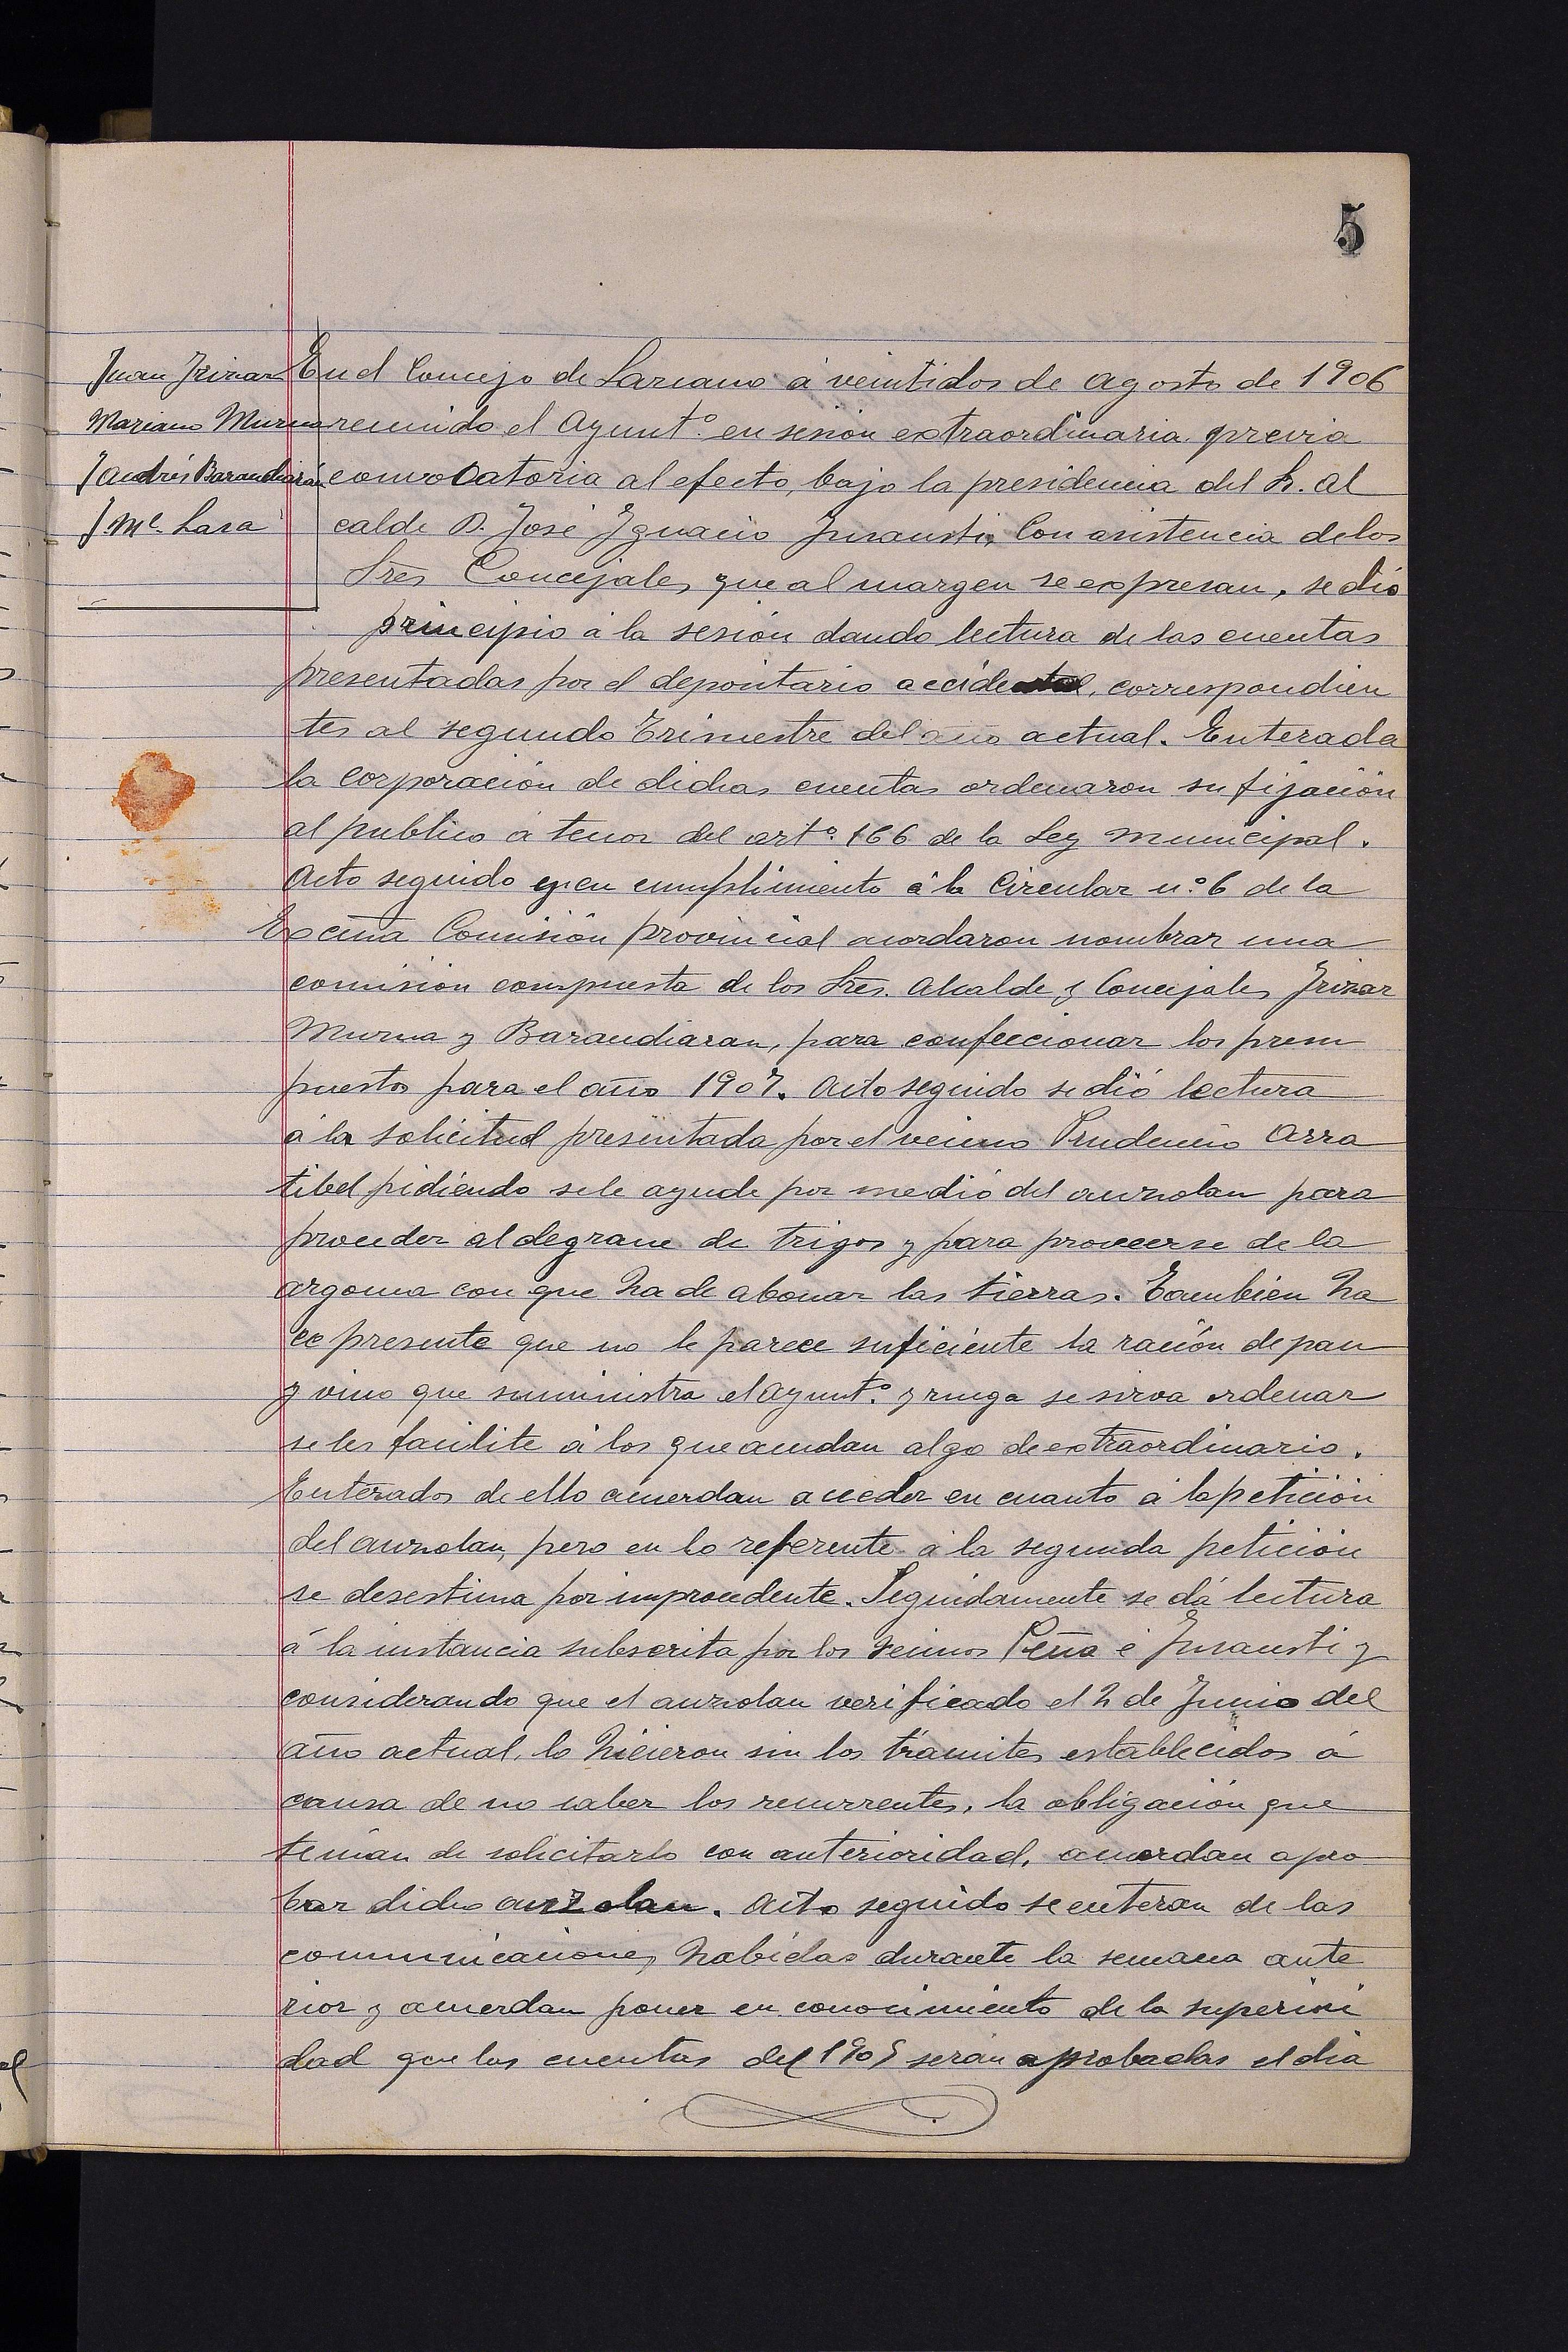 5
Juan Irizar
Mariano Murua
J Andrés Barandiarán
J. Mª. Lasa
En el Concejo de Lazcano á veintidos de agosto de 1906
reunido el Ayuntº. en sesión extraordinaria previa
convocatoria al efecto, bajo la presidencia del Sr. Al
calde D. José Ignacio Insausti, Con asistencia de los
Sres Concejales que al margen se expresan, se dió
principio á la sesión dando lectura de las cuentas
presentadas por el depositario accidental, correspondien
tes al segundo Trimestre del año actual. Enterada
la corporación de dichas cuentas ordenaron su fijación
al publico á tenor del artº. 166 de la Ley municipal.
Acto seguido y en cumplimiento á la Circular nº 6 de la
Excma Comisión provincial acordaron nombrar una
comisión compuesta de los Sres. Alcalde y Concejales Irizar
Murua y Barandiaran, para confeccionar los presu
puestos para el año 1907. Acto seguido se dió lectura
á la solicitud presentada por el vecino Prudencio Arra
tibel pidiendo se le ayude por medio del auzolan para
proceder al degrane de trigos y para proveerse de la
argoma con que ha de abonar las tierras. Tambien ha
ce presente que no le parece suficiente la ración de pan
y vino que suministra el Ayuntº. y ruega se sirva ordenar
se les facilite á los que acudan algo de extraordinario.
Enterados de ello acuerdan acceder en cuanto á la petición
del auzolan, pero en lo referente á la segunda petición
se desestima por improcedente. Seguidamente se dá lectura
á la instancia subscrita por los vecinos Peña é Insausti y
considerando que el auzolan verificado el 2 de Junio del
año actual, lo hicieron sin los trámites establecidos á
causa de no saber los recurrentes, la obligación que
tenian de solicitarlo con anterioridad, acuerdan apro
bar dicho auzolan. Acto seguido se enteran de las
comunicaciones habidas durante la semana ante
rior y acuerdan poner en conocimiento de la superiori
dad que las cuentas del 1905 serán aprobadas el dia